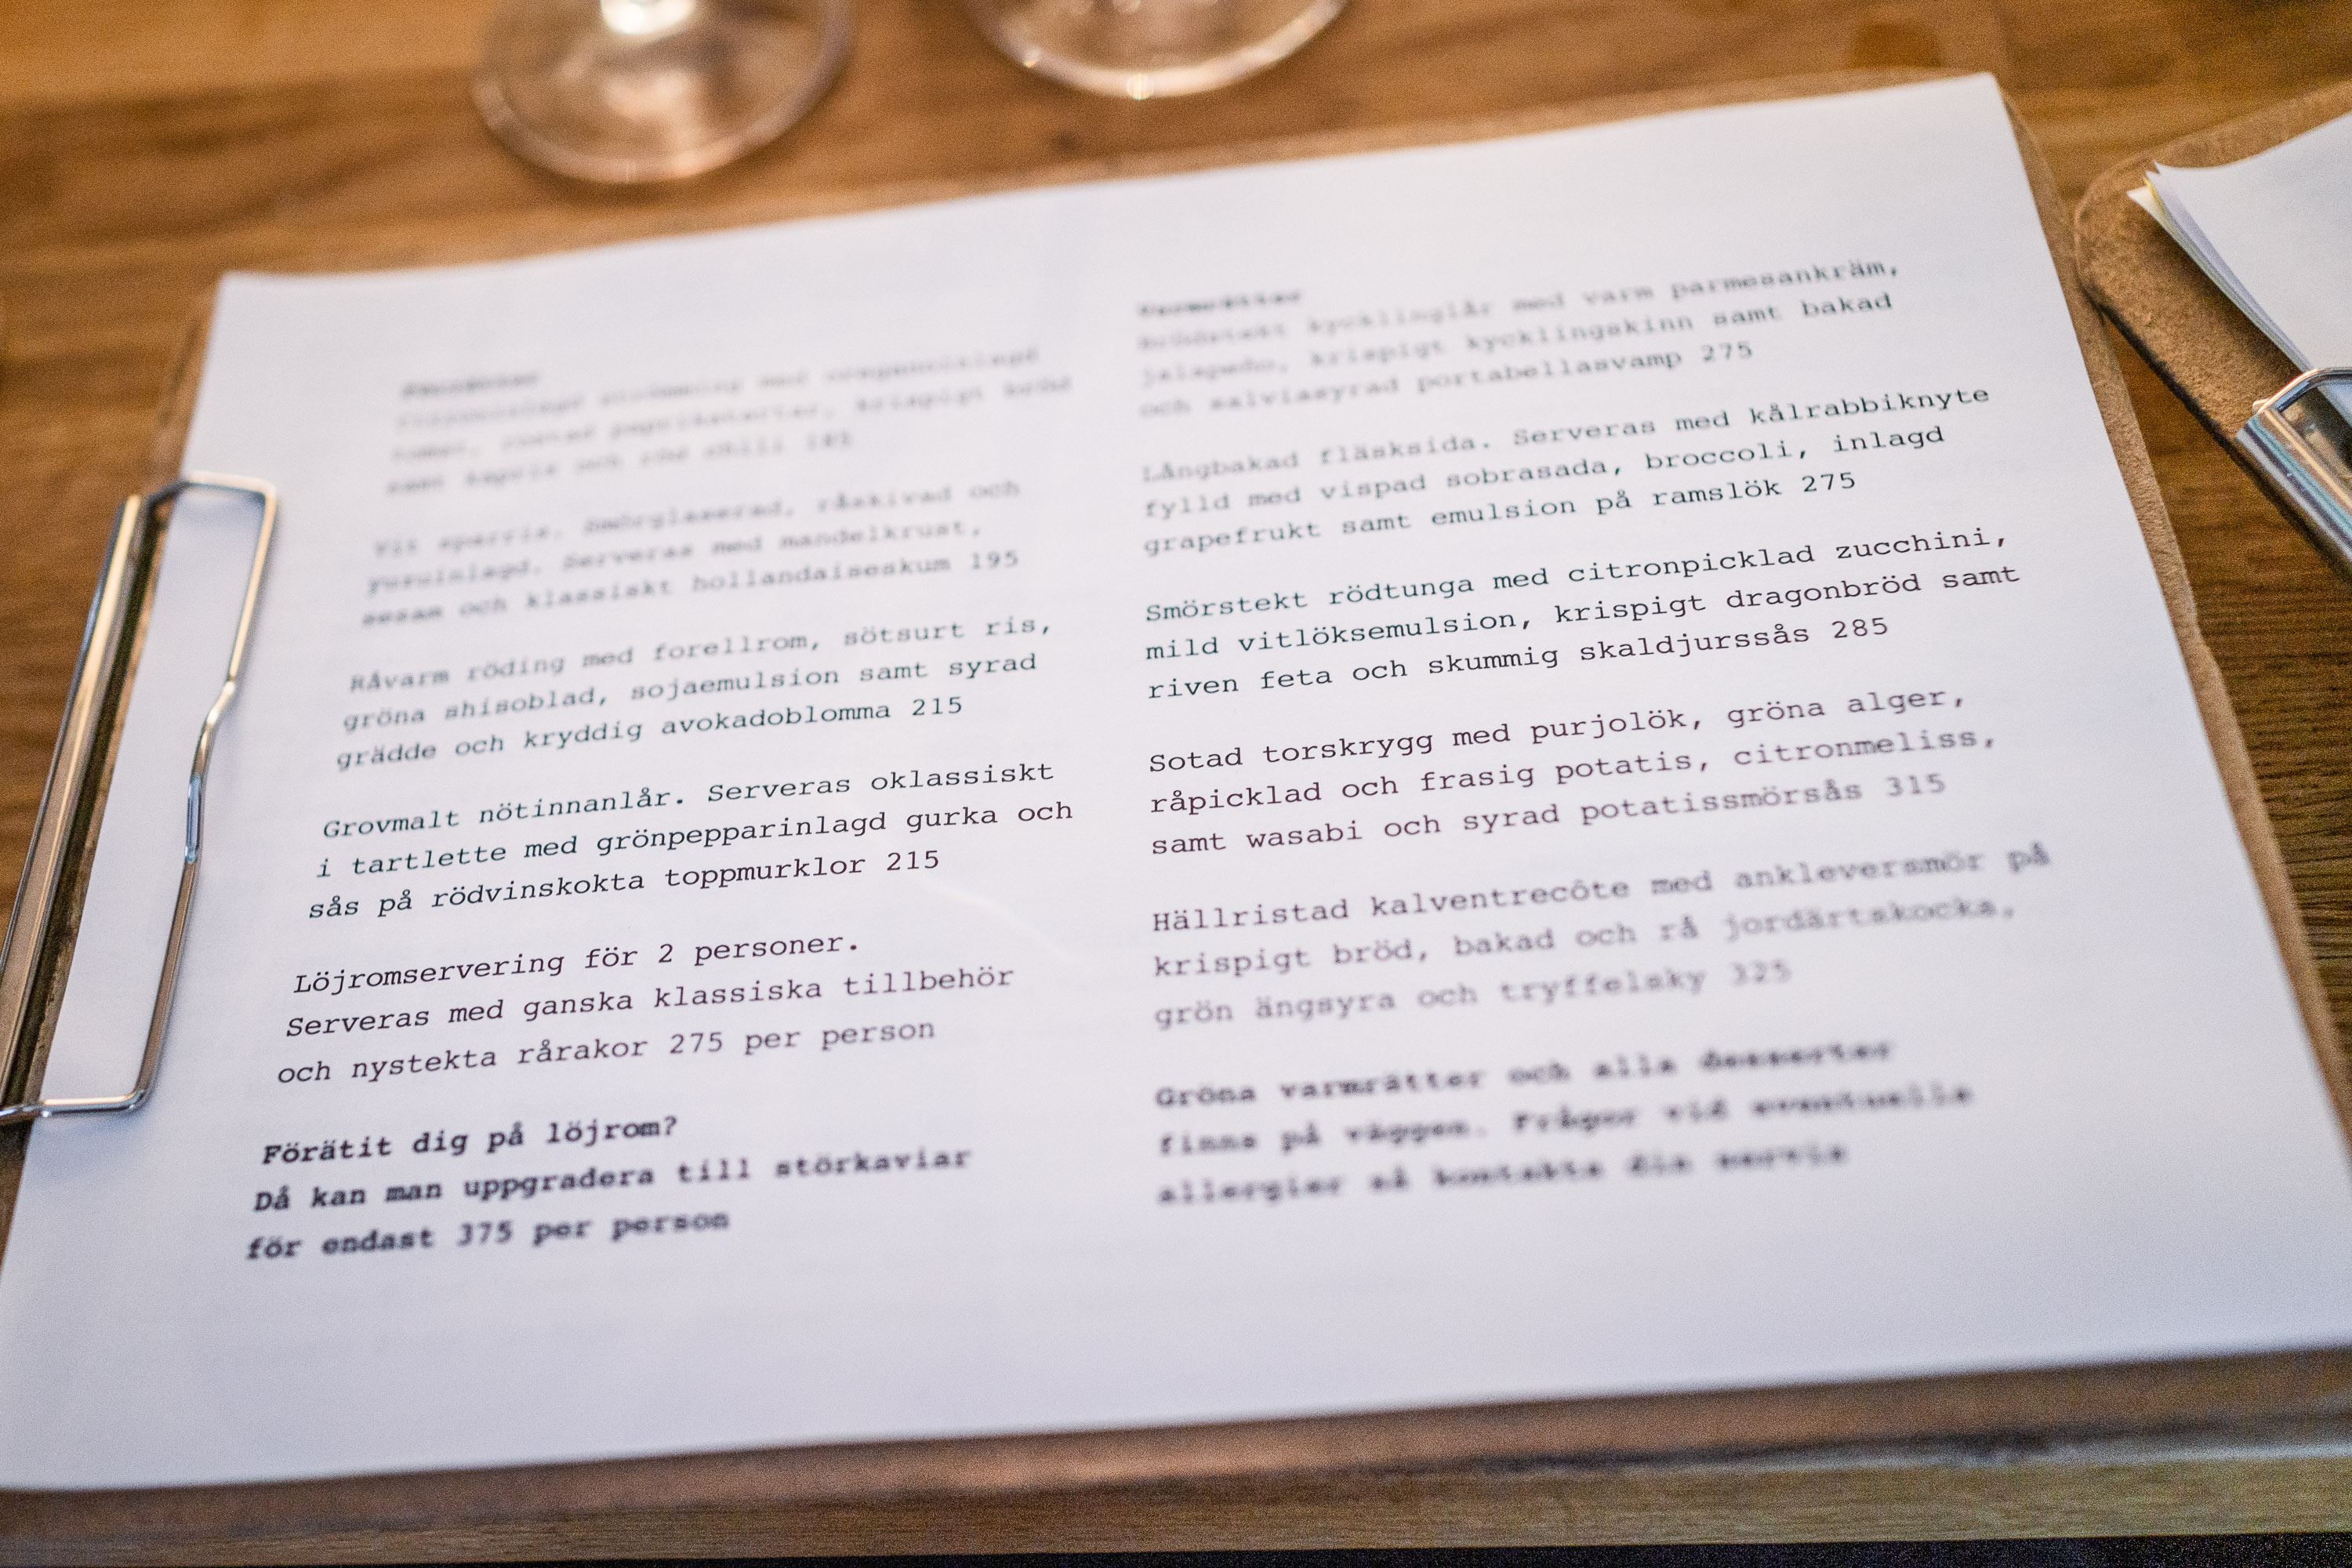 strömming med oreganoinlagd
rostad paprikatartar, krispigt bröd
samt kapris och röd chili 185
Vit sparris. Smörglaserad, råskivad och
yuzuinlagd. Serveras med mandelkrust,
sesam och klassiskt hollandaiseskum 195
Råvarm röding med forellrom, sötsurt ris,
gröna shisoblad, sojaemulsion samt syrad
grädde och kryddig avokadoblomma 215
Grovmalt nötinnanlår. Serveras oklassiskt
i tartlette med grönpepparinlagd gurka och
sås på rödvinskokta toppmurklor 215
Löjromservering för 2 personer.
Serveras med ganska klassiska tillbehör
och nystekta rårakor 275 per person
Förätit dig på löjrom?
Då kan man uppgradera till störkaviar
för endast 375 per person
Varmrätter
kycklinglår med varm parmesankräm,
jalapeño, krispigt kycklingskinn samt bakad
och salviasyrad portabellasvamp 275
Långbakad fläsksida. Serveras med kålrabbiknyte
fylld med vispad sobrasada, broccoli, inlagd
grapefrukt samt emulsion på ramslök 275
Smörstekt rödtunga med citronpicklad zucchini,
mild vitlöksemulsion, krispigt dragonbröd samt
riven feta och skummig skaldjurssås 285
Sotad torskrygg med purjolök, gröna alger,
råpicklad och frasig potatis, citronmeliss,
samt wasabi och syrad potatissmörsås 315
Hällristad kalventrecôte med ankleversmör på
krispigt bröd, bakad och rå jordärtskocka,
grön ängsyra och tryffelsky 325
Gröna varmrätter och alla desserter
finns på väggen. Frågor vid eventuella
allergier så kontakta din servis